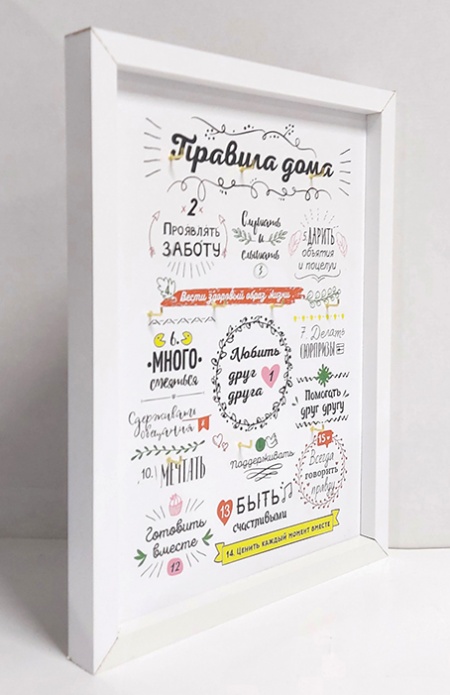 Правила дома
2
ПРОЯВЛЯТЬ
ЗАБОТУ
Слушать
и
слышать
3
5 ДАРИТЬ
объятия
и поцелуи
Вести здоровый образ жизни
6.
МНОГО
смеяться
Любить
друг
друга
1
7. Делать
СЮРПРИЗЫ
Сдерживать
обещания
Помогать
друг другу
10.
МЕЧТАТЬ
поддерживать
15
Всегда
говорить
правду
Готовить
вместе
12
13
БЫТЬ
счастливыми
14. ЦЕНИТЬ КАЖДЫЙ МОМЕНТ ВМЕСТЕ